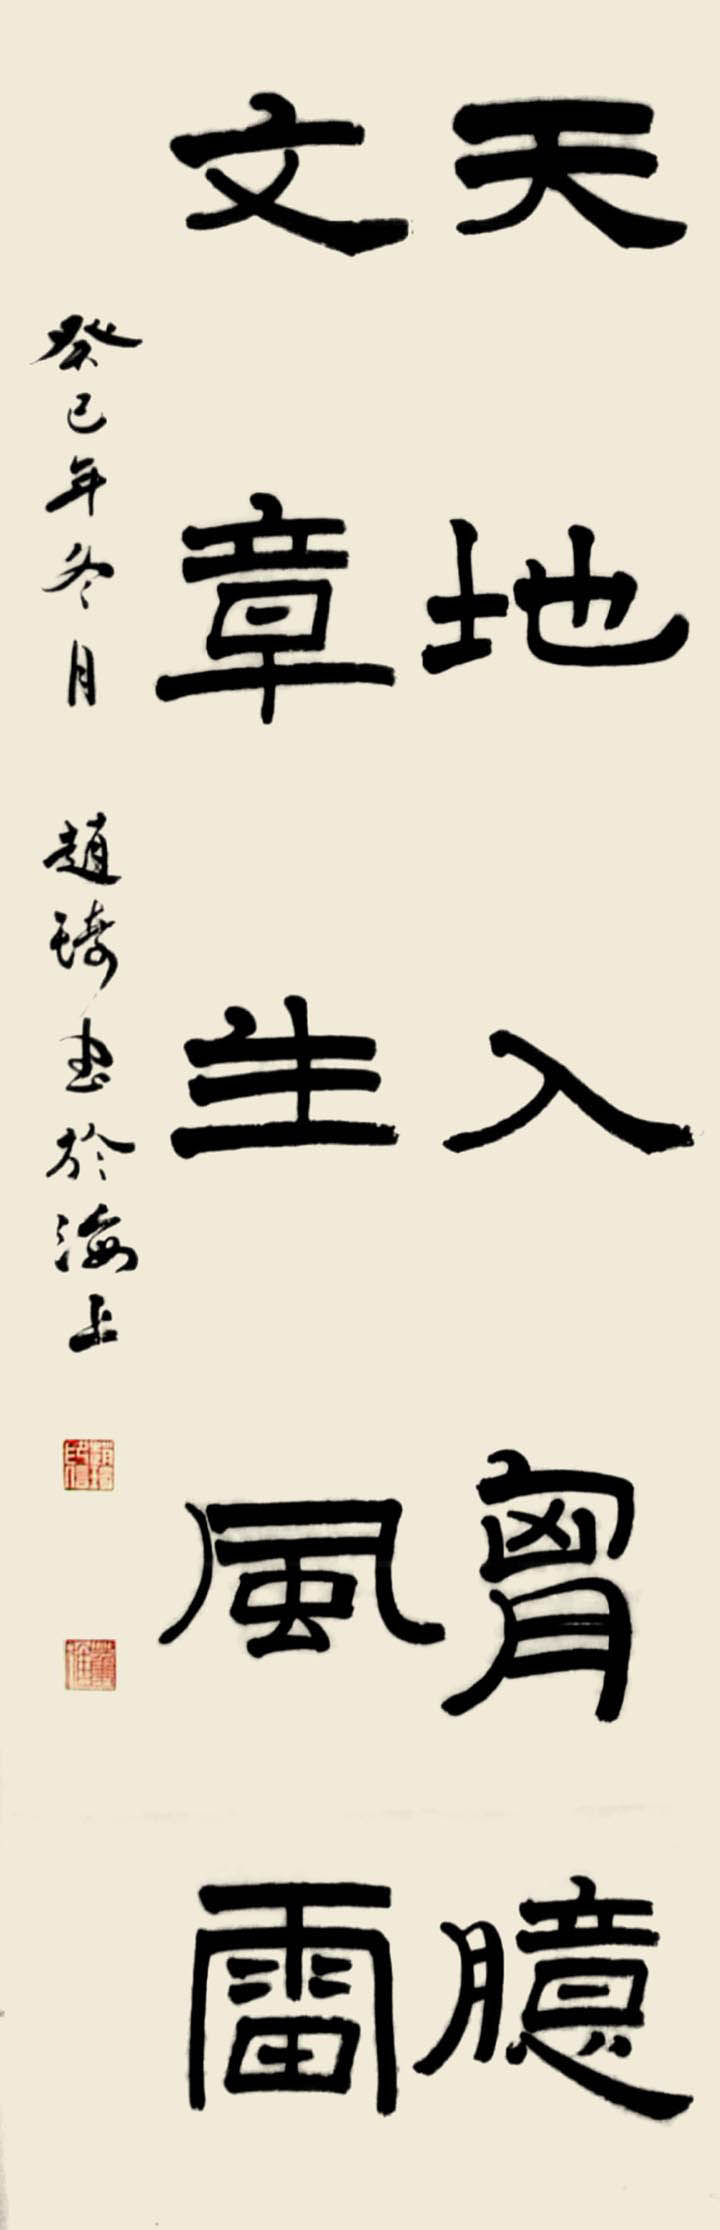 天地入胷臆
文章生風雷
癸巳年冬月 趙琦書於海上